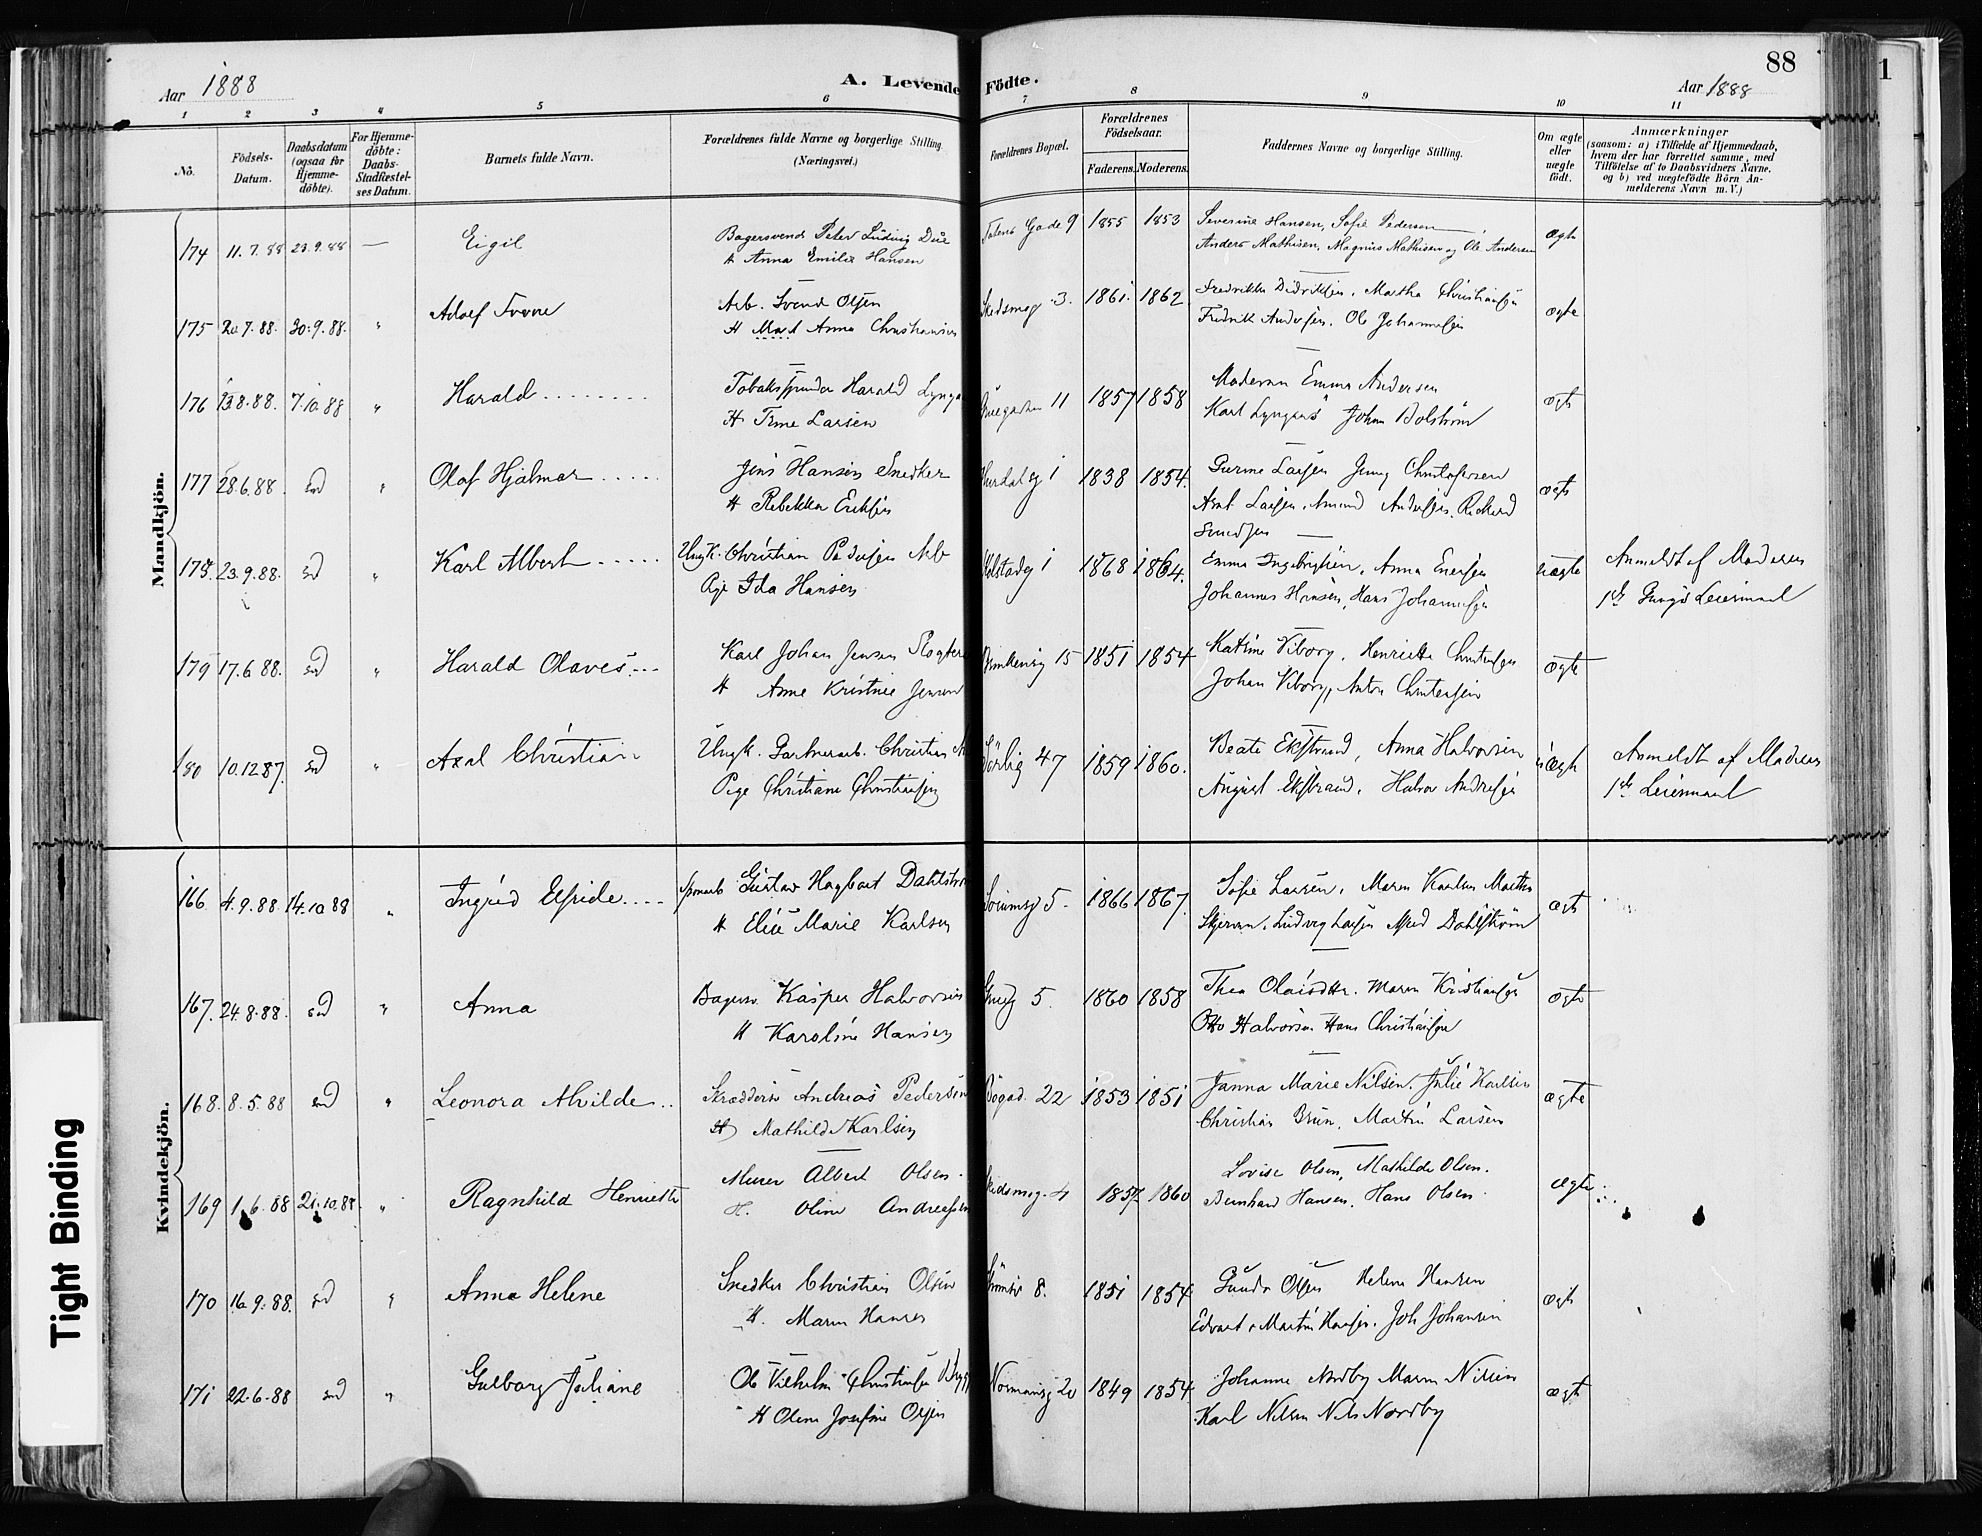 Aar 1888
A. Levende Födte.
88
1
Aar 1888
1 2 3 4 5 6 7 8 9 10 11
No.
Födsels-Datum.
Daabsdatum (ogsaa for Hjemme-döbte).
For Hjemme-döbte: Daabs-Stadfæstel-ses Datum.
Barnets fulde Navn.
Forældrenes fulde Navne og borgerlige Stilling. (Næringsvei.)
Forældrenes Bopæl.
Forældrenes Födselsaar.
Faderens. Moderens.
Faddernes Navne og borgerlige Stilling.
Om ægte eller uægte födt.
Anmærkninger
(saasom: a) i Tilfælde af Hjemmedaab,
hvem der har forrettet samme, med
Tilföielse af to Daabsvidners Navne.
og b) ved uægtefödte Börn An-
melderens Navn m.V.)
Mandkjön.
174 11.7.88 23.9.88 — Eigil
Bagersvend Peter Ludvig Due
H Anna Emilie Hansen
Gade 9 1855 1853
Severine Hansen, Sofie Pedersen
Anders Mathisen, Magnus Mathisen og Ole Andersen
ægte
175 20.7.88. 30.9.88. " Adolf
Arb. Svend Olsen
H Mart Anna Christiansen
Skedsmog 3. 1861. 1862
Fredrikke Didriksen, Martha Christiansen
Fredrik Andersen, Ole Johannesen
ægte
176 13.8.88. 7.10.88 " Harald
Tobakspinder Harald
H Trine Larsen
11 1857 1858
Moderen Emma Andersen
Karl Lyngaas Johan Bolström
ægte
177 28.6.88. sd " Olaf Hjalmar
Jens Hansen Snedker
H Rebekka Eriksen
Hurdalsg 1 1838 1854.
Gurine Larsen Jenny Christofersen
Arnt Larsen, Amund Andersen, Rickard
Svendsen
ægte
178 23.9.88. sd " Karl Albert
Ungk. Christian Pedersen Arb
Pige Ida Hansen
1 1868 1864.
Emma Ingebrigtsen, Anna Enersen
Johannes Hansen, Hans Johannesen
uægte
Anmeldt af Moderen
1ste Gangs Leiermaal
179 17.6 88. sd " Harald Olaves
Karl Johan Jensen
H Anne Kristine Jensen
15 1851 1854
Katrine Viborg, Henriette Christensen
Johan Viborg, Anton Christensen
ægte
180 10.12 87. sd " Axel Christian
Ungk. Gartnerarb. Christian
Pige Christiane Christiansen
Sörlig 47 1859 1860.
Beate Ekstrand, Anna Halvorsen
August Ekstrand, Halvor Andresen
uægte
Anmeldt af Moderen
1ste Leiermaal
Kvindekjön.
166 4.9.88. 14.10 88 " Ingrid Elfride
Gustav Hagbart Dahlström
H Elise Marie Karlsen
Sörumsg 5. 1866 1867.
Sofie Larsen, Maren Karlsen Martha
Skjerven, Ludvig Larsen Alfred Dahlström
ægte
167. 24.8.88. sd " Anna
Bagersv. Kasper Halvorsen
H Karoline Hansen
5. 1860 1858
Thea Olaisdtter. Maren Kristiansen
Otto Halvorsen Hans Christiansen
ægte
168. 8.5.88 sd " Leonora Alvilde
Skræddersv Andreas Pedersen
H Mathilde Karlsen
Bögad. 22 1853 1851
Janna Marie Nilsen. Julie Karlsen
Christian Brun, Martin Larsen
ægte
169 1.6.88 21.10.88. " Ragnhild Henriette
Murer Albert Olsen.
H. Oline Andreasen
Skedsmog. 4 1857. 1860
Lovise Olsen, Mathilde Olsen.
Bernhard Hansen, Hans Olsen.
ægte
170 16.9.88. sd " Anna Helene
Snedker Christian Olsen
H. Maren Hansen
8. 1851 1854.
Gunda Olsen Helene Hansen
Edvart, Martin Hansen, Joh Johansen
ægte
171 22.6.88 sd " Gulborg Juliane
Ole Vilhelm Christiansen
H Oline Josefine Olsen
Normansg 20 1849 1854.
Johanne Nordby Maren Nilsen
Karl Nilsen Nils Nordby
ægte
Tight Binding